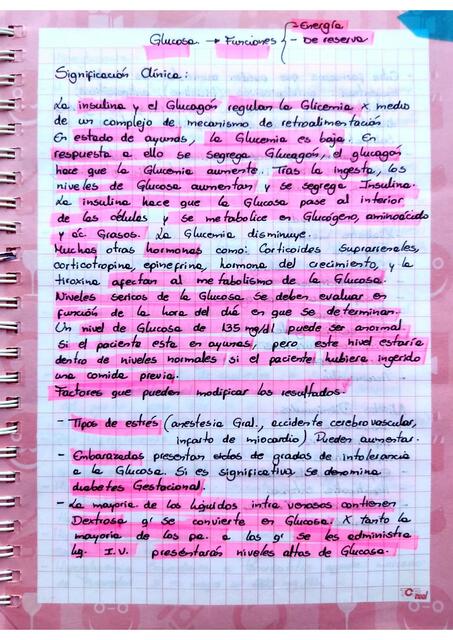 - Energía
Glucosa → Funciones
- De reserva
Significación Clínica:
La insulina y el Glucagón regulan la Glicemia x medio
de un complejo de mecanismo de retroalimentación
En estado de ayunas, la Glucemia es baja. En
respuesta a ello se segrega Glucagón, el glucagón
hace que la Glucemia aumente. Tras la ingesta, los
niveles de Glucosa aumentan y se segrega Insulina.
La insulina hace que la Glucosa pase al interior
de las células y se metabolice en Glucógeno, aminoácido
y ác. Grasos. La Glucemia disminuye.
Muchas otras hormonas como: Corticoides Suprarrenales,
corticotropina, epinefrina, hormona del crecimiento, y la
tiroxina afectan al metabolismo de la Glucosa.
Niveles sericos de la Glucosa se deben evaluar en
función de la hora del día en que se determinan.
Un nivel de Glucosa de 135 mg/dl puede ser anormal
si el paciente esta en ayunas, pero este nivel estaría
dentro de niveles normales si el paciente hubiera ingerido
una comida previa.
Factores que pueden modificar los resultados.
- Tipos de estrés (anestesia Gral., accidente cerebrovascular,
infarto de miocardio) Pueden aumentar.
- Embarazadas presentan de grados de intolerancia
a la Glucosa. Si es significativa se denomina
diabetes Gestacional.
- La mayoría de los líquidos intra venosos contienen
Dextrosa q' se convierte en Glucosa. X tanto la
mayoría de los pa. a los q' se les administra
Lq. I.V. presentarán niveles altos de Glucosa.